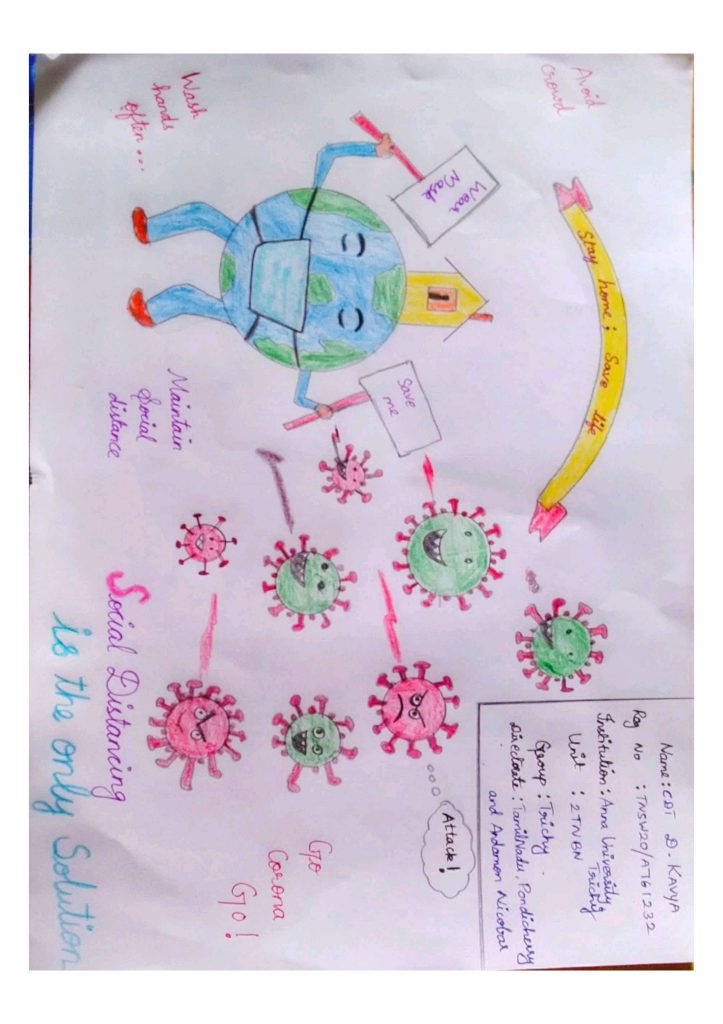 Avoid
crowd
Stay home; Save life
Name: CDT D. KAVYA
Reg No : TNSW20/A761232
Institution: Anna University,
Trichy
Unit : 2TNBN
Group : Trichy.
Directorate : TamilNadu, Pondicherry
and Andaman Nicobar
Wear
Mask
Save
me
Attack!
Wash
hands
often...
Maintain
Social
distance
Go
Corona
Go!
Social Distancing
is the only Solution